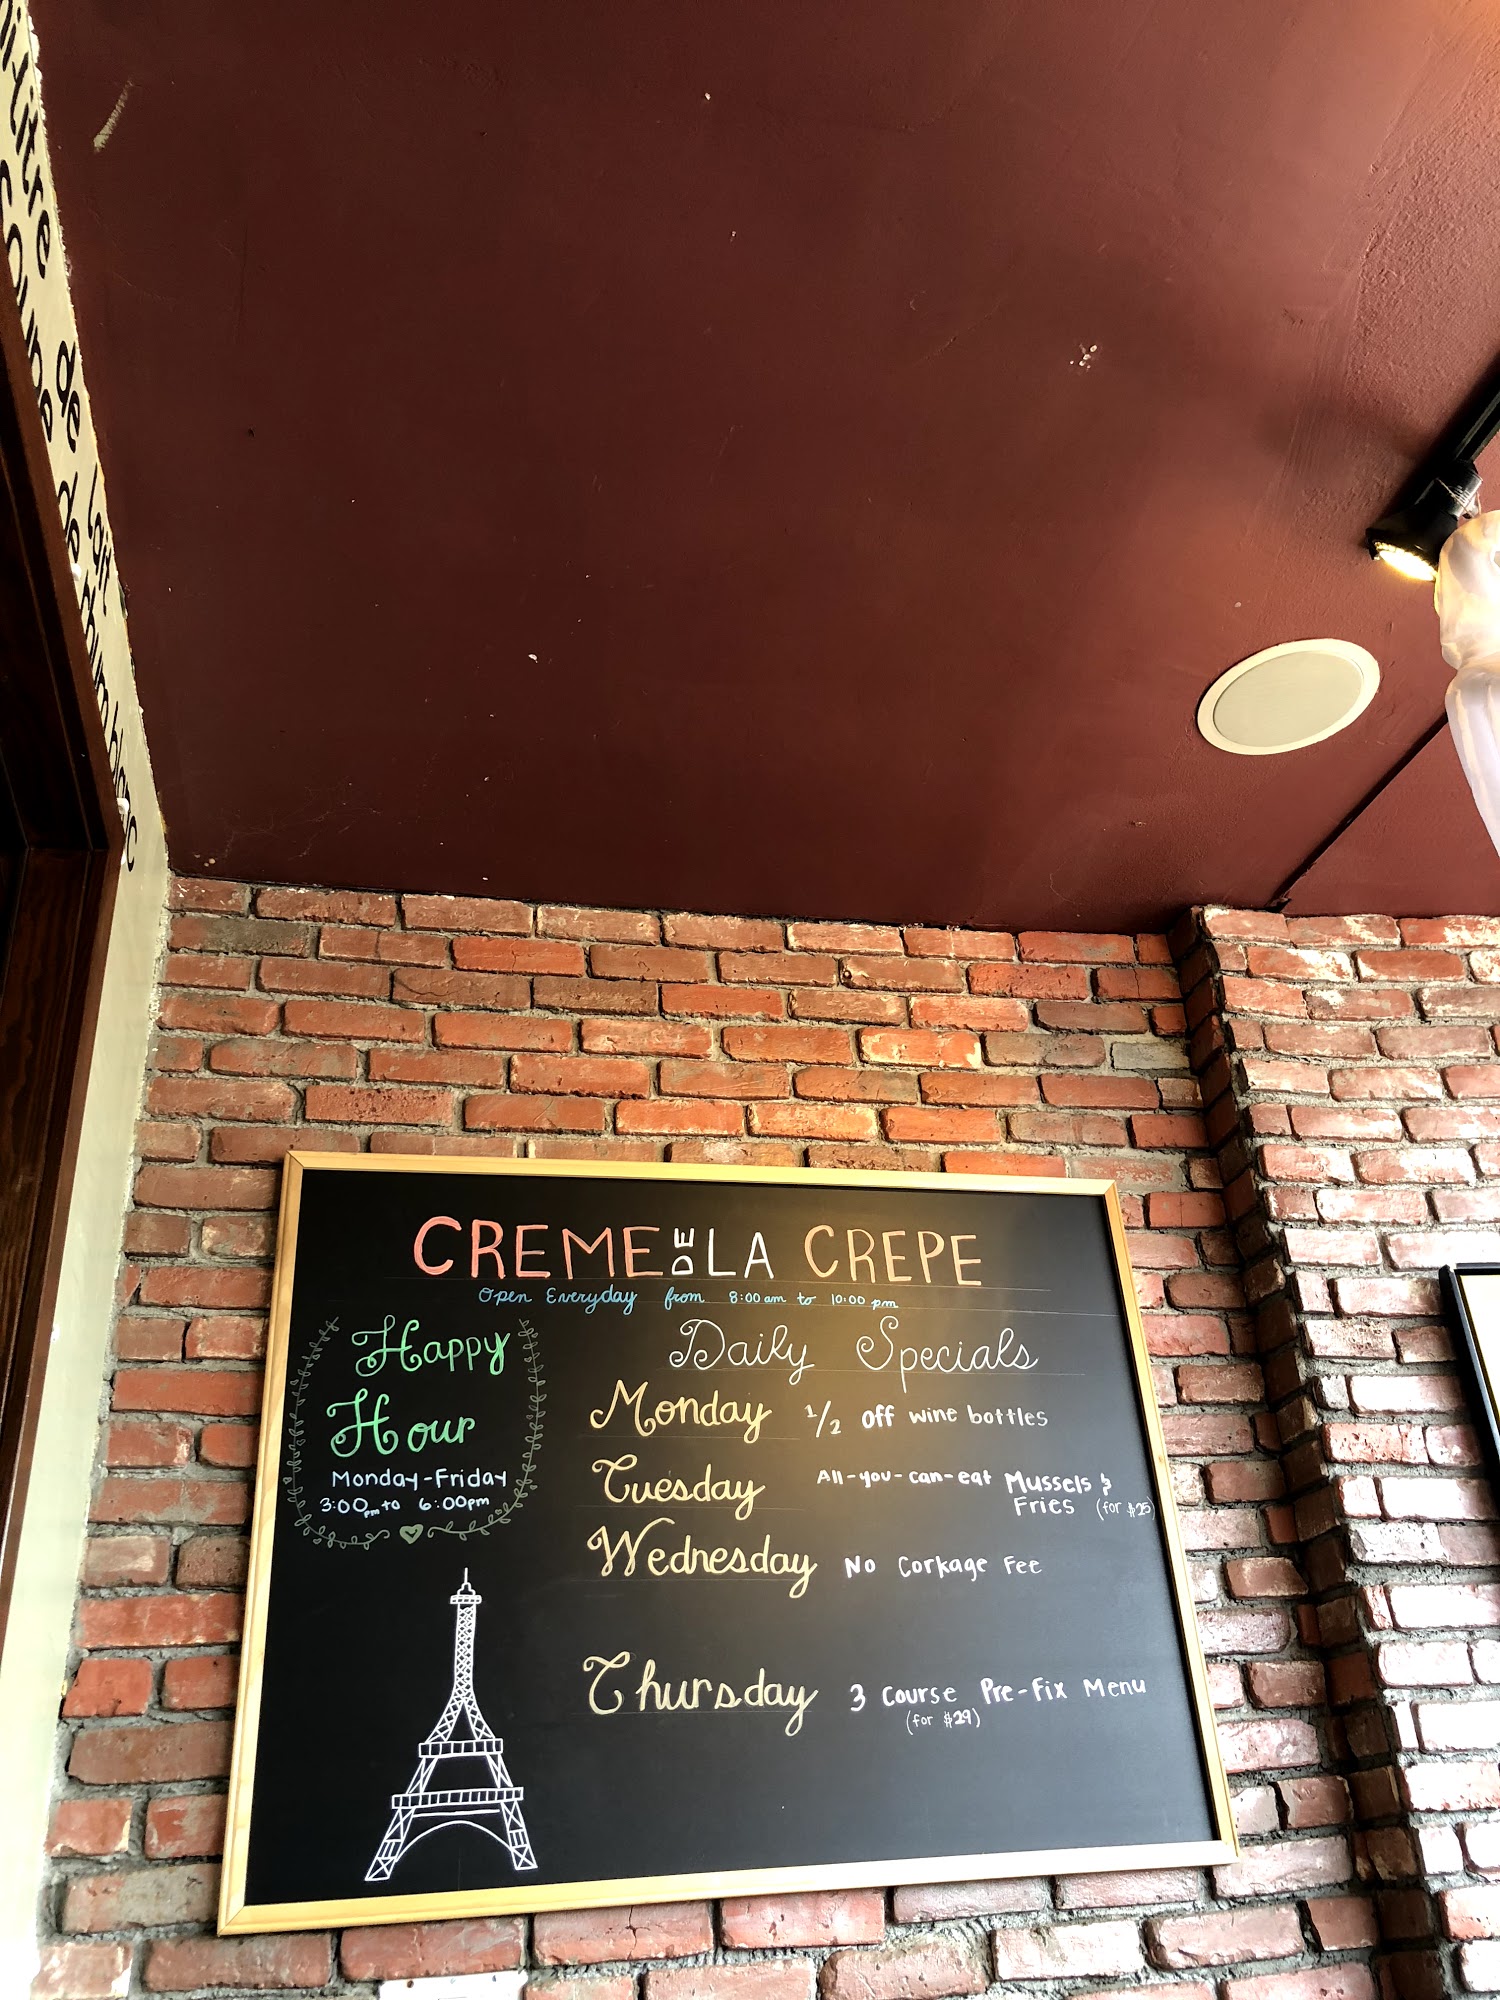 mi-litre de lait
Coupe de rhum blanc
CREME DE LA CREPE
Open Everyday from 8:00 am to 10:00 pm
Happy
Hour
Monday-Friday
3:00pm to 6:00pm
Daily Specials
Monday 1/2 off wine bottles
Tuesday All-you-can-eat Mussels &
Fries (for $25)
Wednesday No Corkage Fee
Thursday 3 Course Pre-Fix Menu
(for $29)